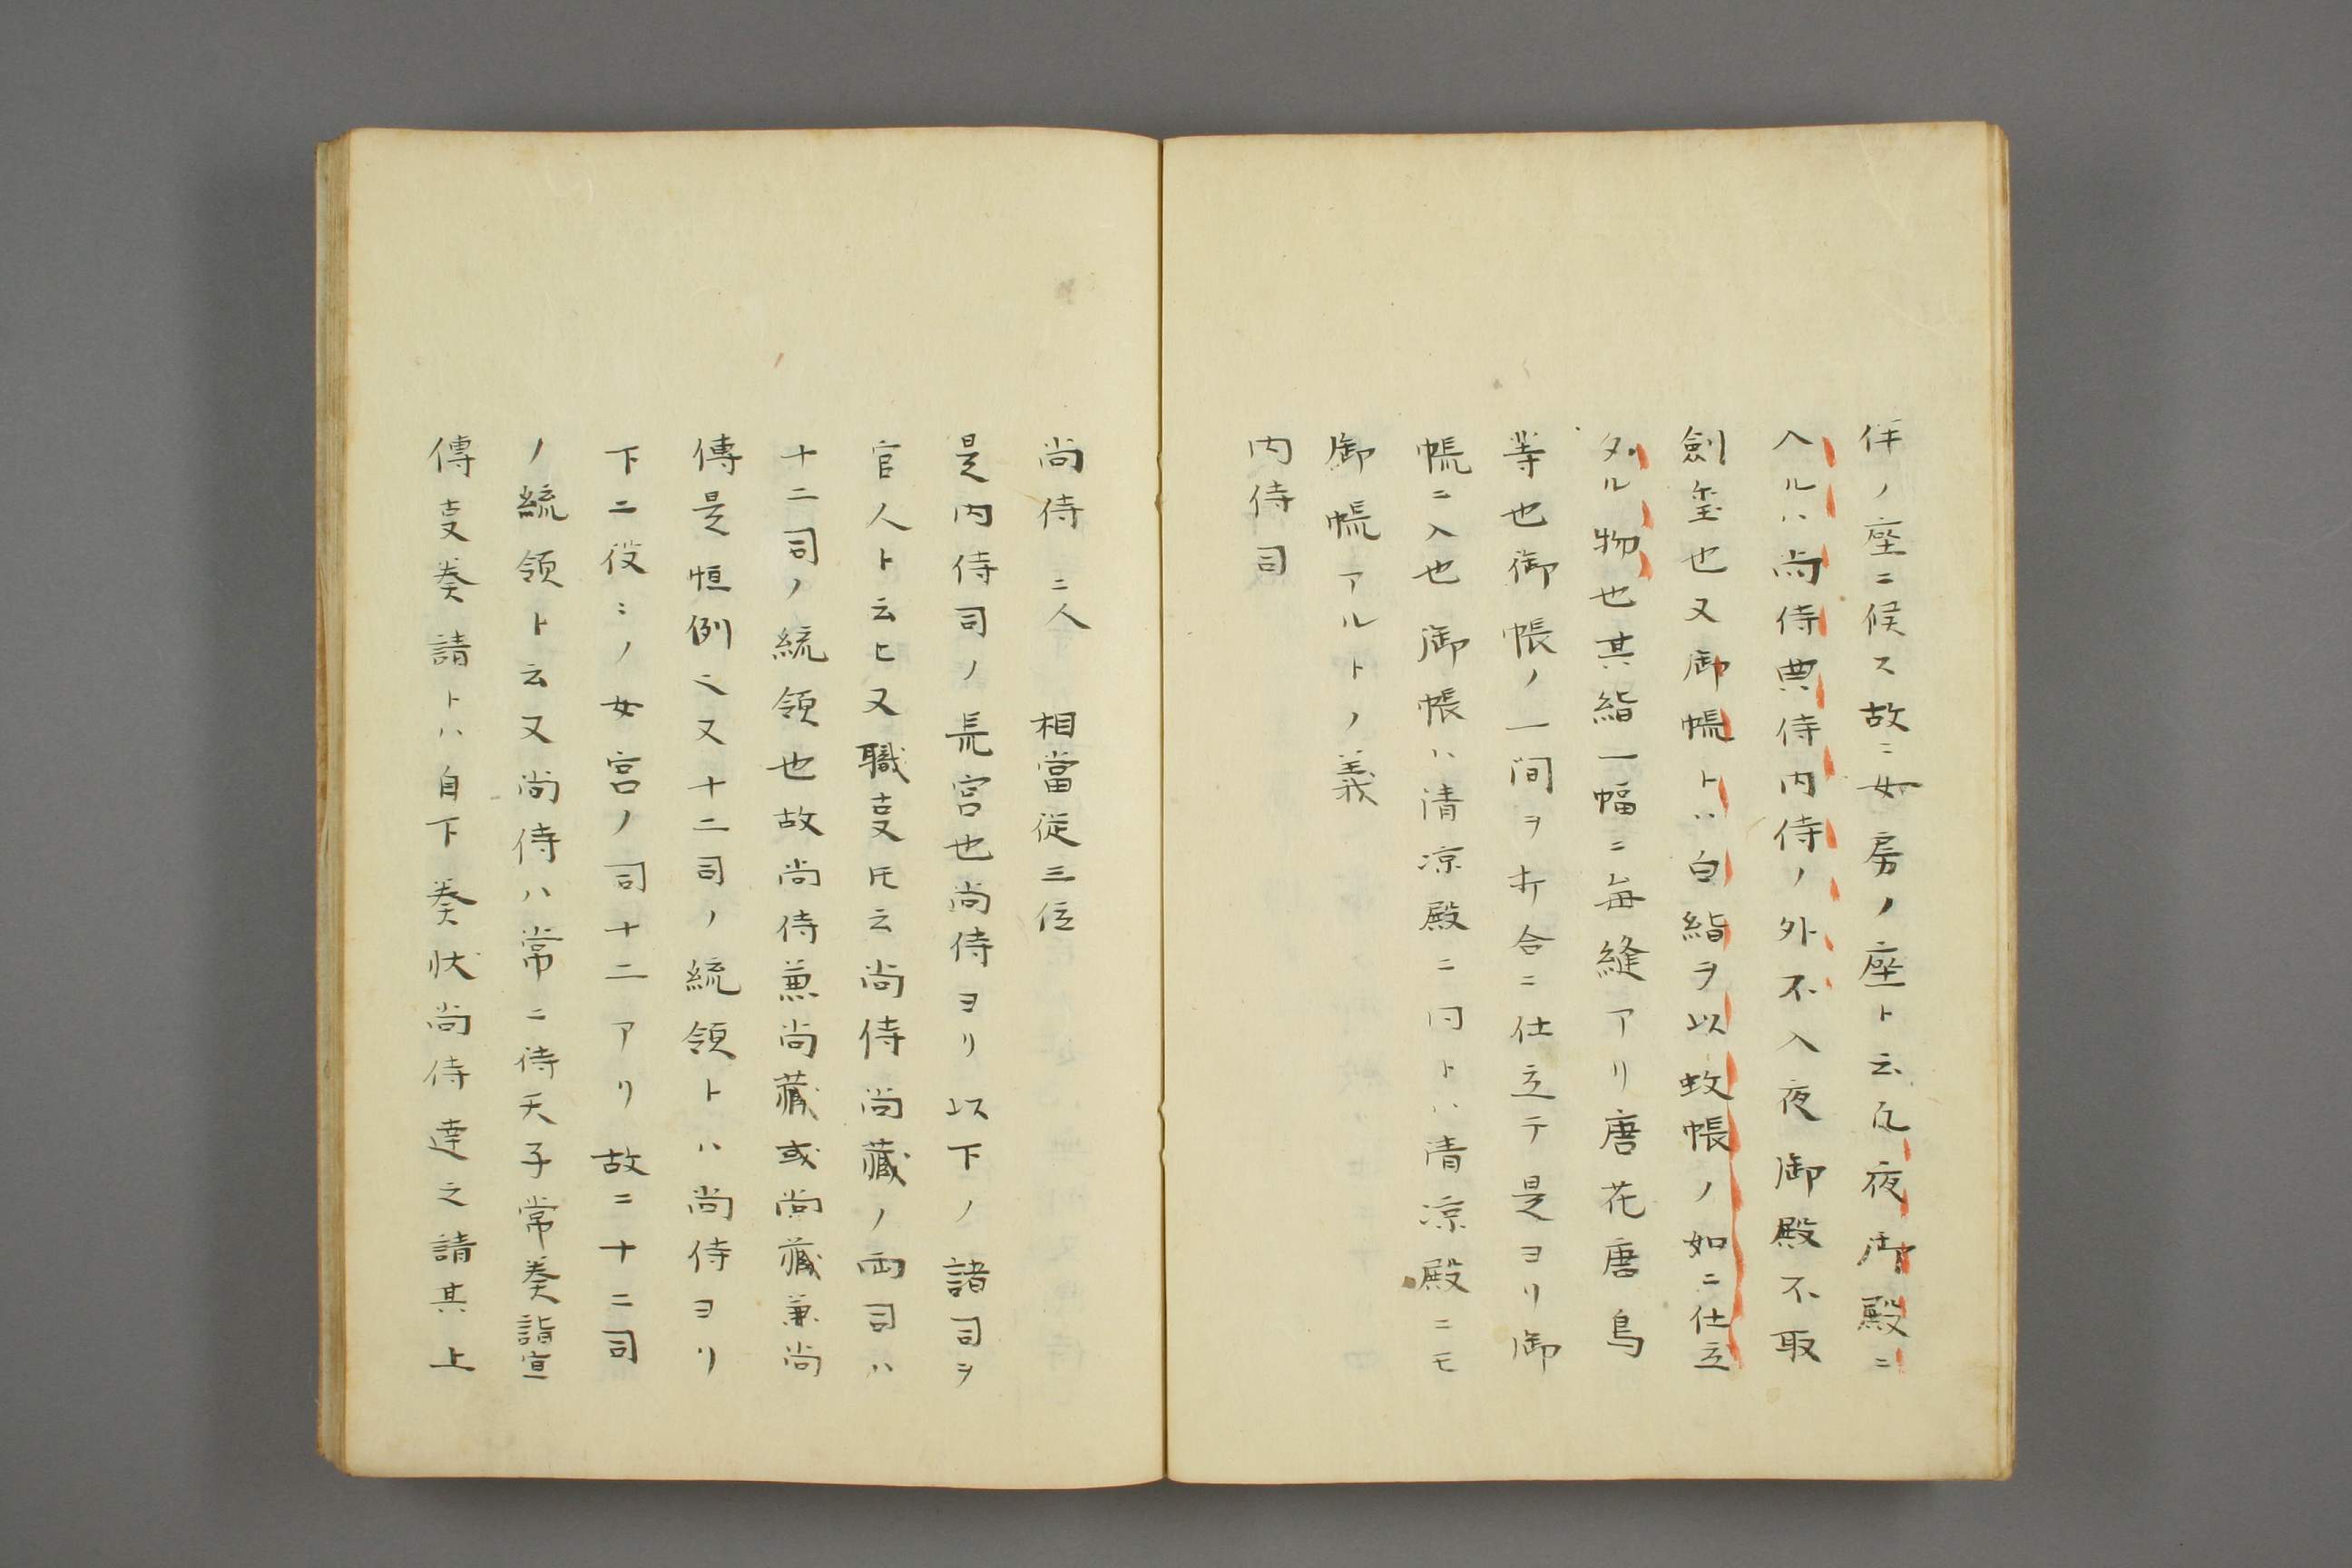 伴ノ座ニ候ス故ニ女房ノ座ト云凡夜御殿ニ
入ルハ尚侍典侍内侍ノ外不入夜御殿不取
劍璽也又御帳トハ白絹ヲ以蚊帳ノ如ニ仕立
タル物也其絹一幅ニ毎縫アリ唐花唐鳥
等也御帳ノ一間ヲ折合ニ仕立テ是ヨリ御
帳ニ入也御帳ハ清凉殿ニ同トハ清凉殿ニモ
御帳アルトノ義
内侍司
尚侍 二人 相當從三位
是内侍司ノ長官也尚侍ヨリ以下ノ諸司ヲ
官人ト云ヒ又職亊𪜈云尚侍尚藏ノ両司ハ
十二司ノ統領也故尚侍兼尚藏或尚藏兼尚
傳是恒例也又十二司ノ統領トハ尚侍ヨリ
下ニ役〻ノ女官ノ司十二アリ故ニ十二司
ノ統領ト云又尚侍ハ常ニ待天子常奏請宣
傳亊奏請トハ自下奏状尚侍達之請其上